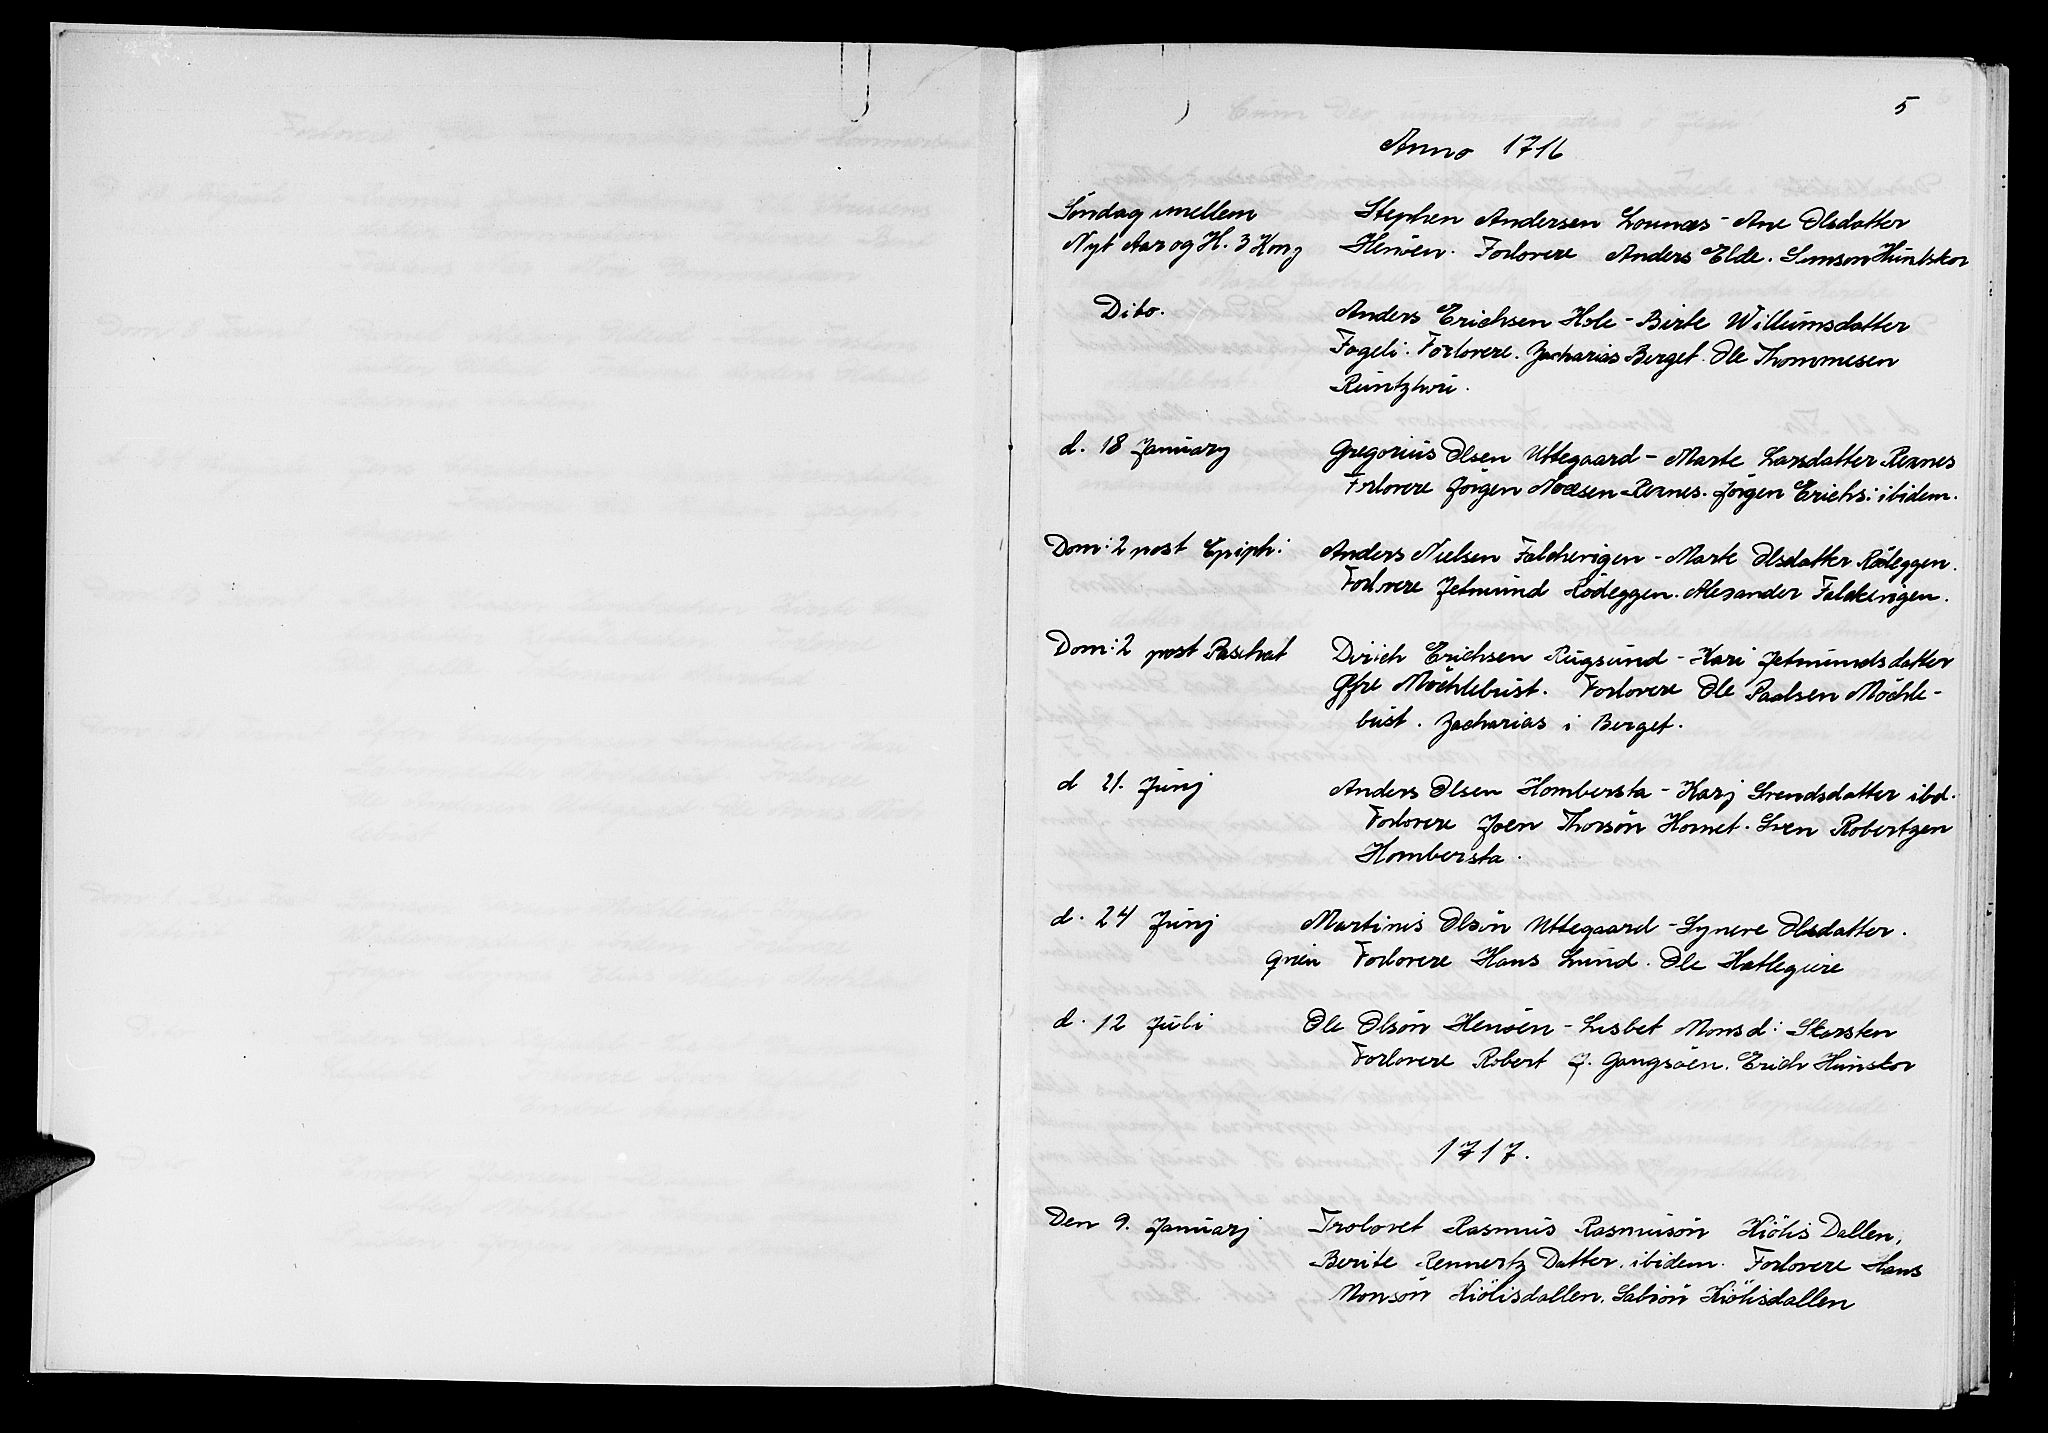 5
Anno 1716
Søndag imellem Stephen Andersen Lounæs - Ane Olsdatter
Nyt Aar og H. 3 Kong Henøen. Forlovere Anders Elde. Simson Hunskor
Dito. Anders Erichsen Hole - Birte Willumsdatter
Fageli. Forlovere. Zacharias Berget. Ole Thommesen
d. 18 January Gregorius Olsen Uttegaard - Marte Larsdatter Rennes
Forlovere Jørgen Rennes. Jørgen Erichs: ibidem.
Dom: 2 post Epiph: Anders Nielsen Falchevigen - Marte Olsdatter Rødeggen.
Forlovere Jetmund Rødeggen. Alexander Falckevigen.
Dom: 2 post Paschat Dirich Erichsen Rugsund - Kari Jetmundsdatter
Øfre Möchlebust. Forlovere Ole Paalsen Möchle-
bust. Zacharias i Berget.
d 21. Junj Anders Olsen Hombersta - Karj Svendsdatter ibd.
Forlovere Joen Thorsøn Hornet. Sven Robertzen
Hombersta.
d. 24 Junj Martinis Olsøn Uttegaard - Synere Olsdatter.
Forlovere Hans Lund. Ole Hatlegiere
d. 12 Juli Ole Olsøn Henøen - Lisbet Monsd: Skorsten
Forlovere Robert J. Gangsøen. Erich Hunskor
1717.
Den 9. Januarj Trolovet Rasmus Rasmusøn Kiölis Dallen,
Berite Rennertz Datter. ibidem. Forlovere Hans
Monsøn Kiölisdallen. Kiölisdallen